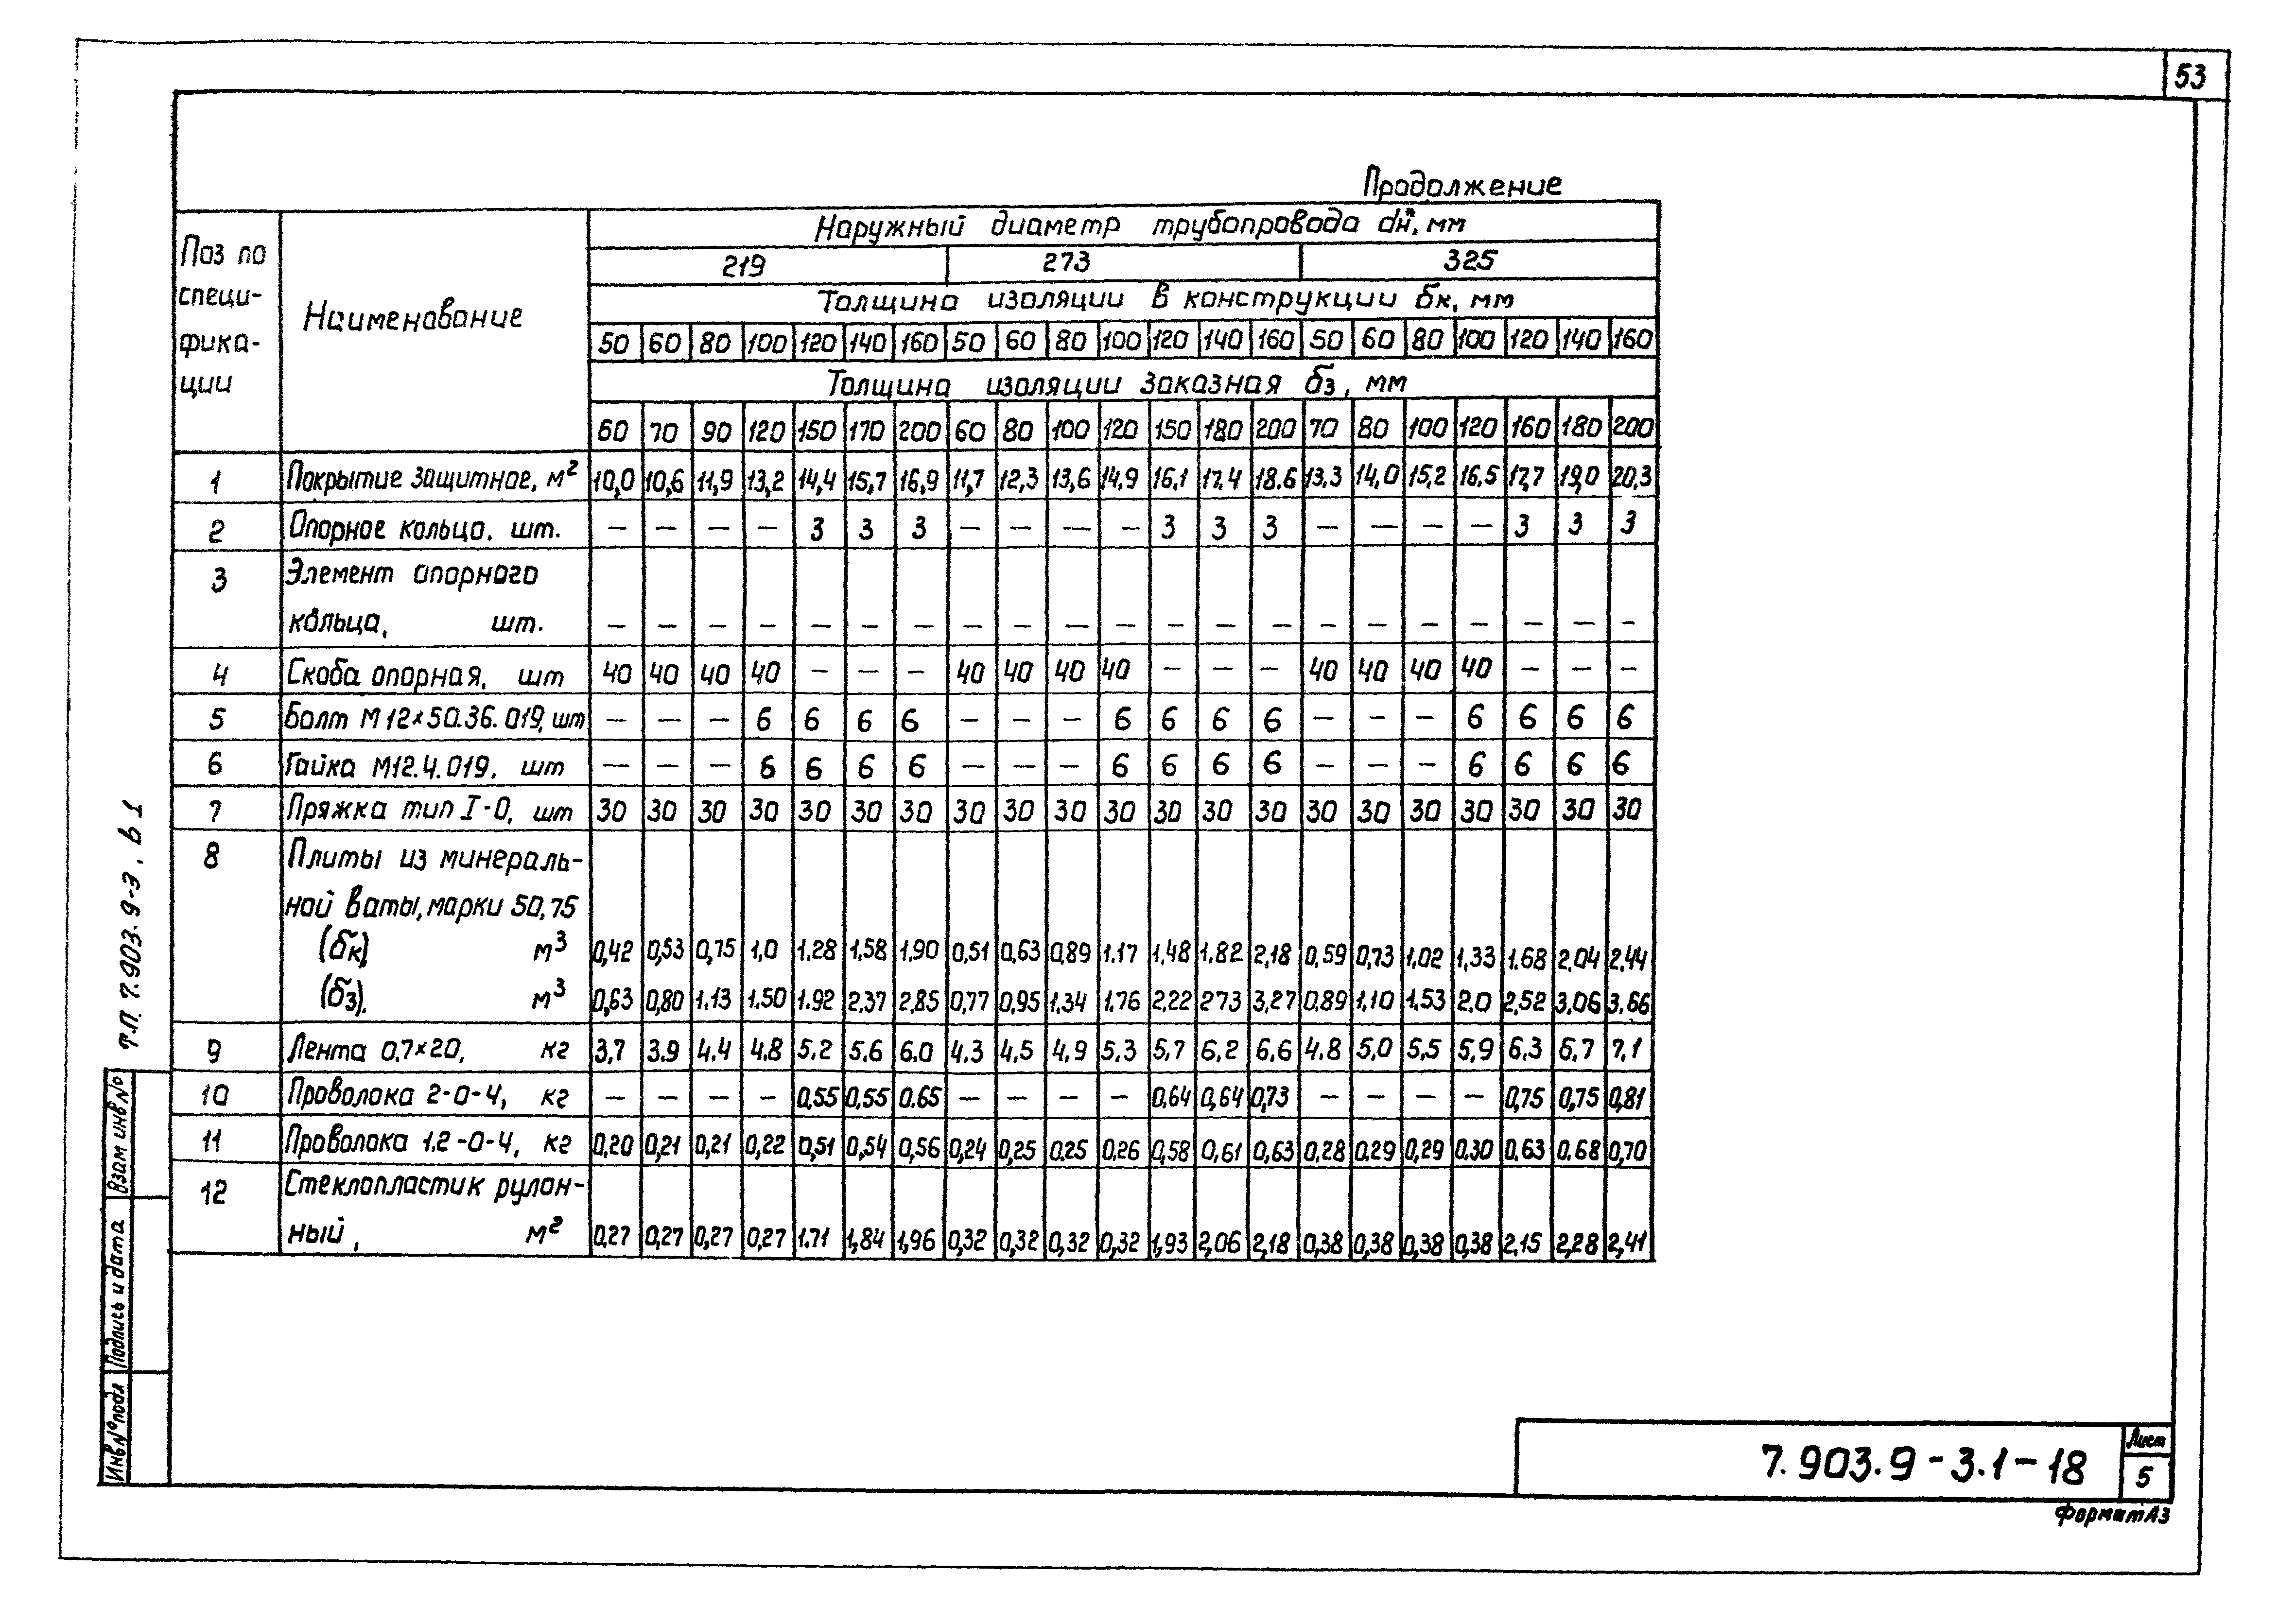 53
Продолжение
Поз по специ-фика-ции | Наименование | Наружный диаметр трубопровода dн, мм
219 | 273 | 325
Толщина изоляции в конструкции бк, мм
50 60 80 100 120 140 160 50 60 80 100 120 140 160 50 60 80 100 120 140 160
Толщина изоляции заказная бз, мм
60 70 90 120 150 170 200 60 80 100 120 150 180 200 70 80 100 120 160 180 200
1 Покрытие защитное, м² 10,0 10,6 11,9 13,2 14,4 15,7 16,9 11,7 12,3 13,6 14,9 16,1 17.4 18.6 13.3 14,0 15,2 16.5 17,7 19,0 20,3
2 Опорное кольцо, шт. — — — — 3 3 3 — — — — 3 3 3 — — — — 3 3 3
3 Элемент опорного
кольца, шт. — — — — — — — — — — — — — — — — — — — — —
4 Скоба опорная, шт 40 40 40 40 — — — 40 40 40 40 — — — 40 40 40 40 — — —
5 Болт М12×50.36.019, шт — — — 6 6 6 6 — — — 6 6 6 6 — — — 6 6 6 6
6 Гайка М12.4.019, шт — — — 6 6 6 6 — — — 6 6 6 6 — — — 6 6 6 6
7 Пряжка тип I-0, шт 30 30 30 30 30 30 30 30 30 30 30 30 30 30 30 30 30 30 30 30 30
8 Плиты из минераль-
ной ваты, марки 50,75
(бк) м³ 0,42 0,53 0,75 1,0 1.28 1.58 1.90 0,51 0,63 0,89 1.17 1,48 1.82 2,18 0,59 0,73 1,02 1,33 1.68 2,04 2,44
(бз). м³ 0,63 0,80 1.13 1.50 1.92 2.37 2,85 0,77 0,95 1,34 1,76 2,22 273 3,27 0,89 1,10 1,53 2.0 2,52 3,06 3.66
9 Лента 0,7×20, кг 3,7 3.9 4.4 4.8 5.2 5.6 6.0 4.3 4,5 4.9 5.3 5,7 6,2 6,6 4.8 5,0 5,5 5,9 6.3 6.7 7,1
10 Проволока 2-0-4, кг — — — — 0,55 0,55 0.65 — — — — 0,64 0,64 0,73 — — — — 0,75 0,75 0,81
11 Проволока 1.2-0-4, кг 0,20 0,21 0,21 0,22 0,51 0,54 0,56 0,24 0,25 0.25 0,26 0,58 0,61 0,63 0.28 0,29 0,29 0.30 0.63 0.68 0,70
12 Стеклопластик рулон-
ный, м² 0,27 0,27 0,27 0,27 1.71 1,84 1,96 0,32 0,32 0,32 0,32 1,93 2,06 2,18 0,38 0,38 0,38 0,38 2,15 2,28 2,41
Т.П. 7.903.9-3, в 1
Взам инв №
Подпись и дата
Инв № подл
7.903.9-3.1-18
Лист
5
Формат А3